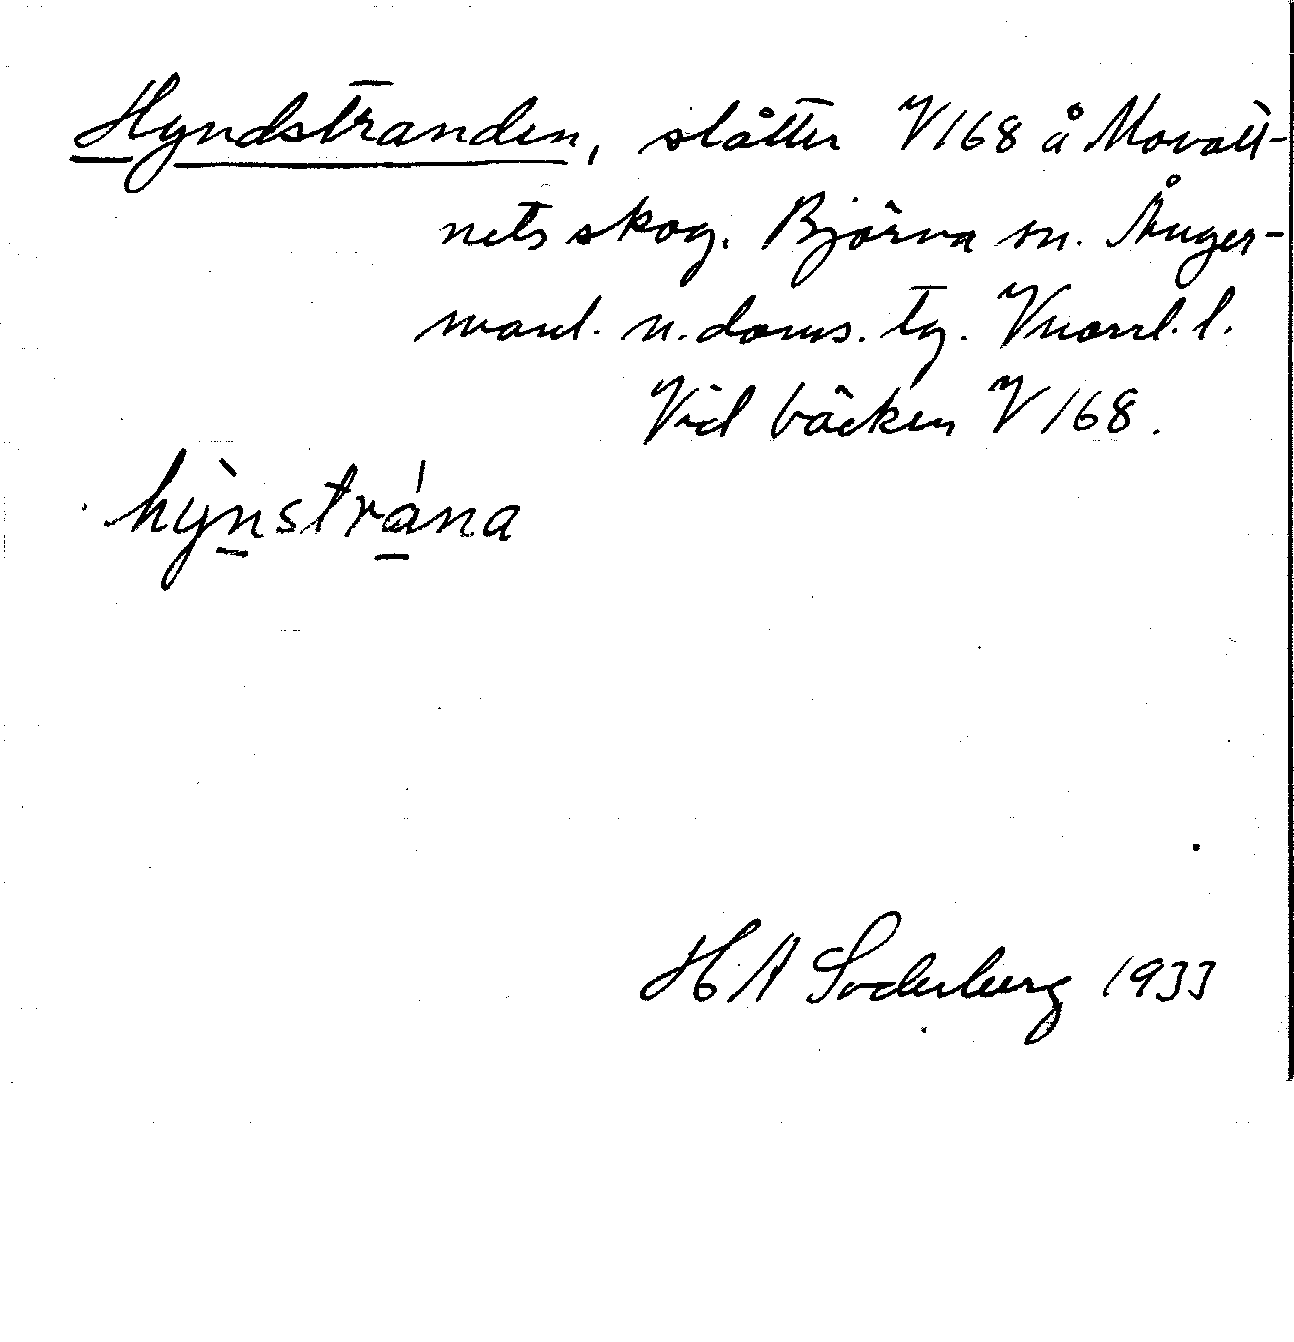 Hyndstranden, slåtter V168 å Movatt-
nets skog. Björna sn. Ånger-
manl. n. doms. tg. Vnorrl. l.
Vid bäcken V 168.
hỳnstrána
H A Söderberg 1933